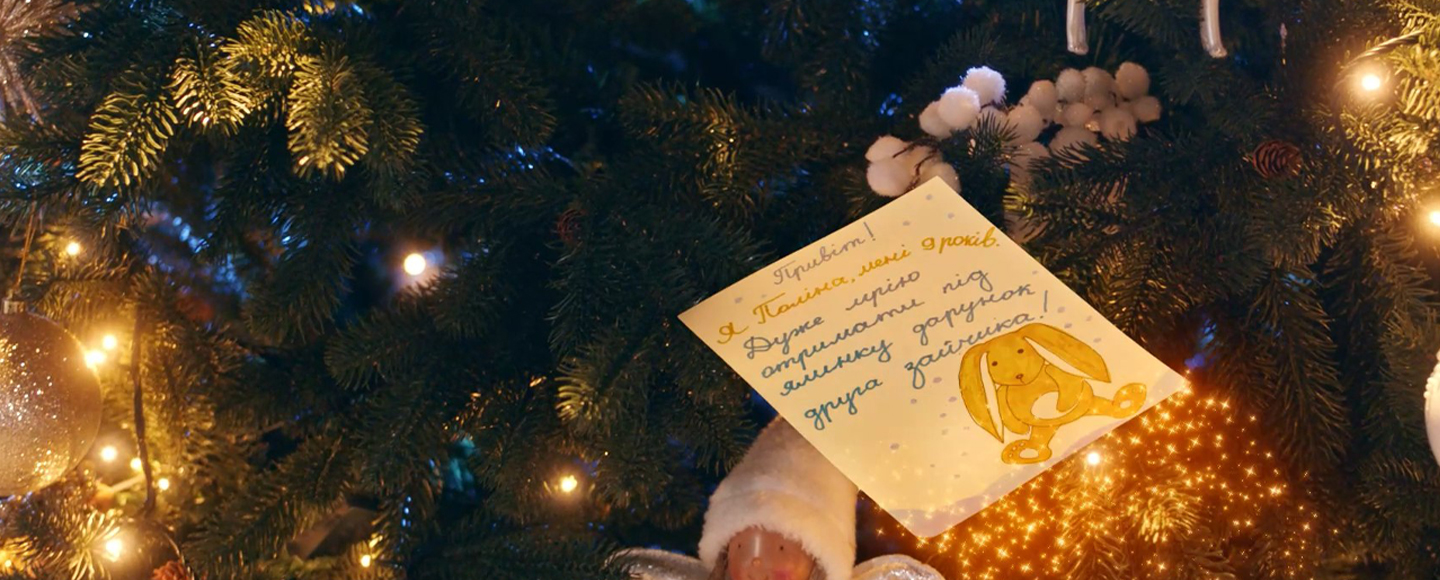 Привіт!
Я Поліна, мені 9 років.
Дуже мрію
отримати під
ялинку дарунок
друга зайчика!